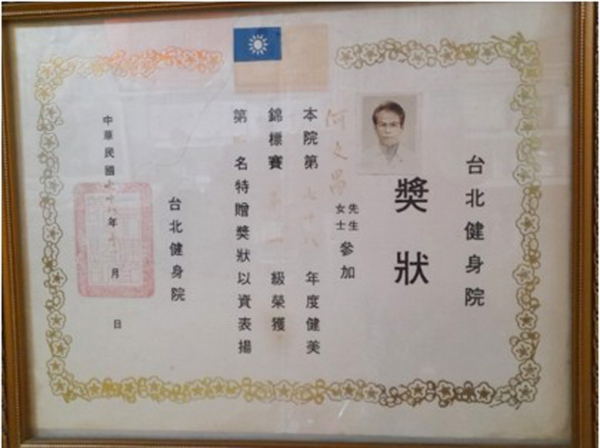 台北健身院
獎狀
何文昌 先生 女士 參加
本院第七十八年度健美
錦標賽第一級榮獲
第 名特贈獎狀以資表揚
台北健身院
中華民國七十八年 月 日